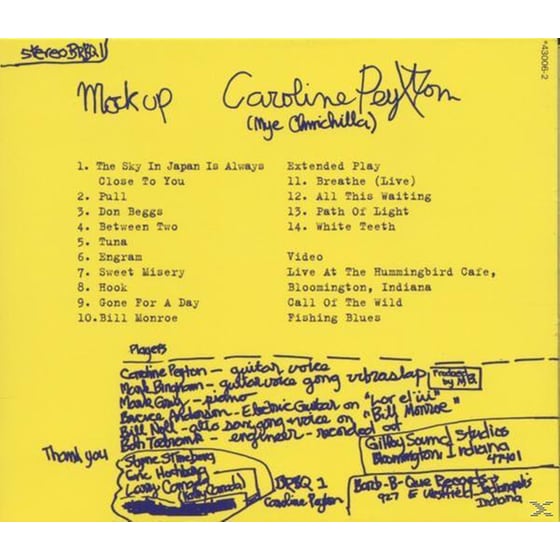 stereo BRBQ 1
*43006-2
Mock up Caroline Peyton
(Mye Chinichilla)
1. The Sky In Japan Is Always
Close To You
2. Pull
3. Don Beggs
4. Between Two
5. Tuna
6. Engram
7. Sweet Misery
8. Hook
9. Gone For A Day
10.Bill Monroe
Extended Play
11. Breathe (Live)
12. All This Waiting
13. Path Of Light
14. White Teeth
Video
Live At The Hummingbird Cafe,
Bloomington, Indiana
Call Of The Wild
Fishing Blues
Players
Caroline Peyton - guitar, voice
Mark Bingham - guitar voice gong vibraslap
Mark Gray - piano
Bruce Anderson - Electric Guitar on "
Bill Noll - alto sax, gong + voice on "Bill Monroe"
- engineer - recorded at
Produced
by MB
Gilfoy Sound Studios
Bloomington, Indiana
47401
Thank you
Eric Hochberg
Larry Canada
(Kathy Canada)
BRBQ 1
Caroline Peyton
Barb-B-Que Records
927 E Westfield Indianapolis
Indiana